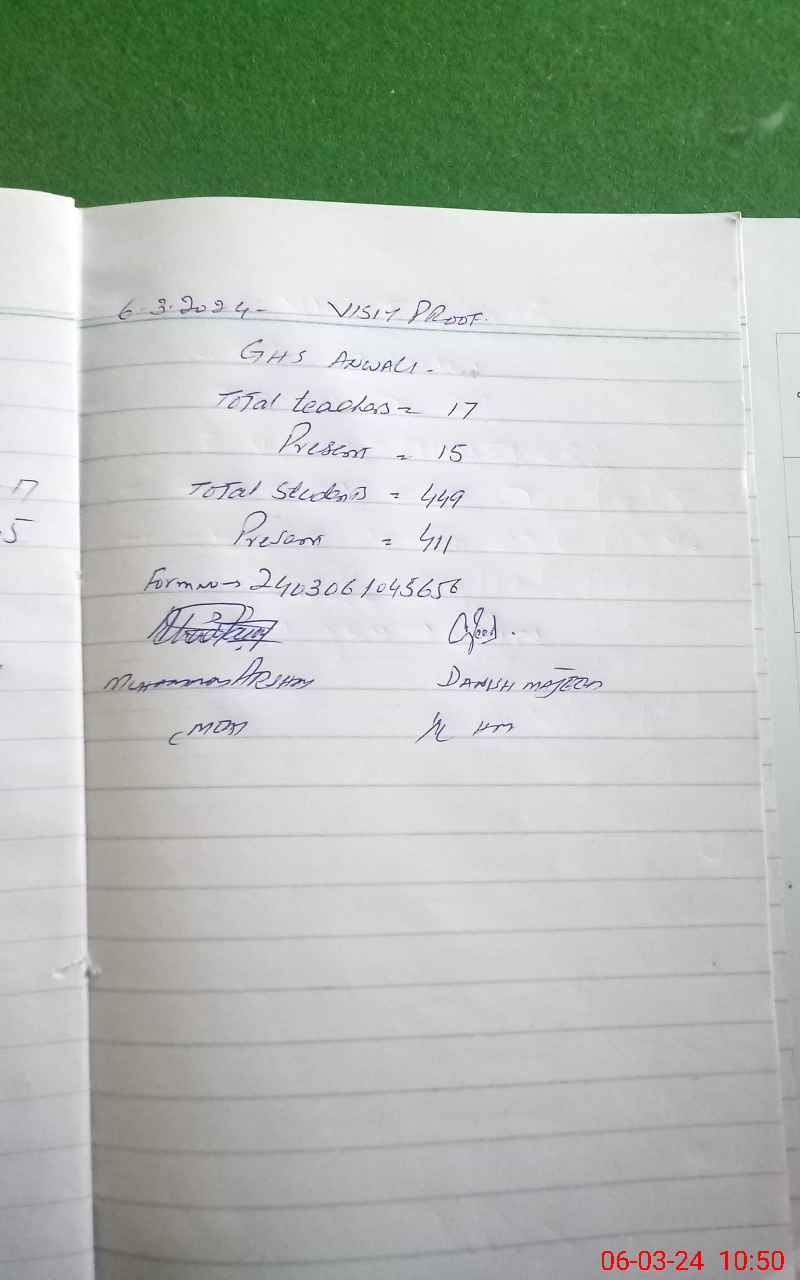 6-3-2024- VISIT PROOF.
GHS ANWALI.
Total teachers = 17
Present = 15
Total Students = 449
Present = 411
Form no- 2403061045656
Muhammad ARSHAD DANISH MAJEED
MEA I/C HM
06-03-24 10:50